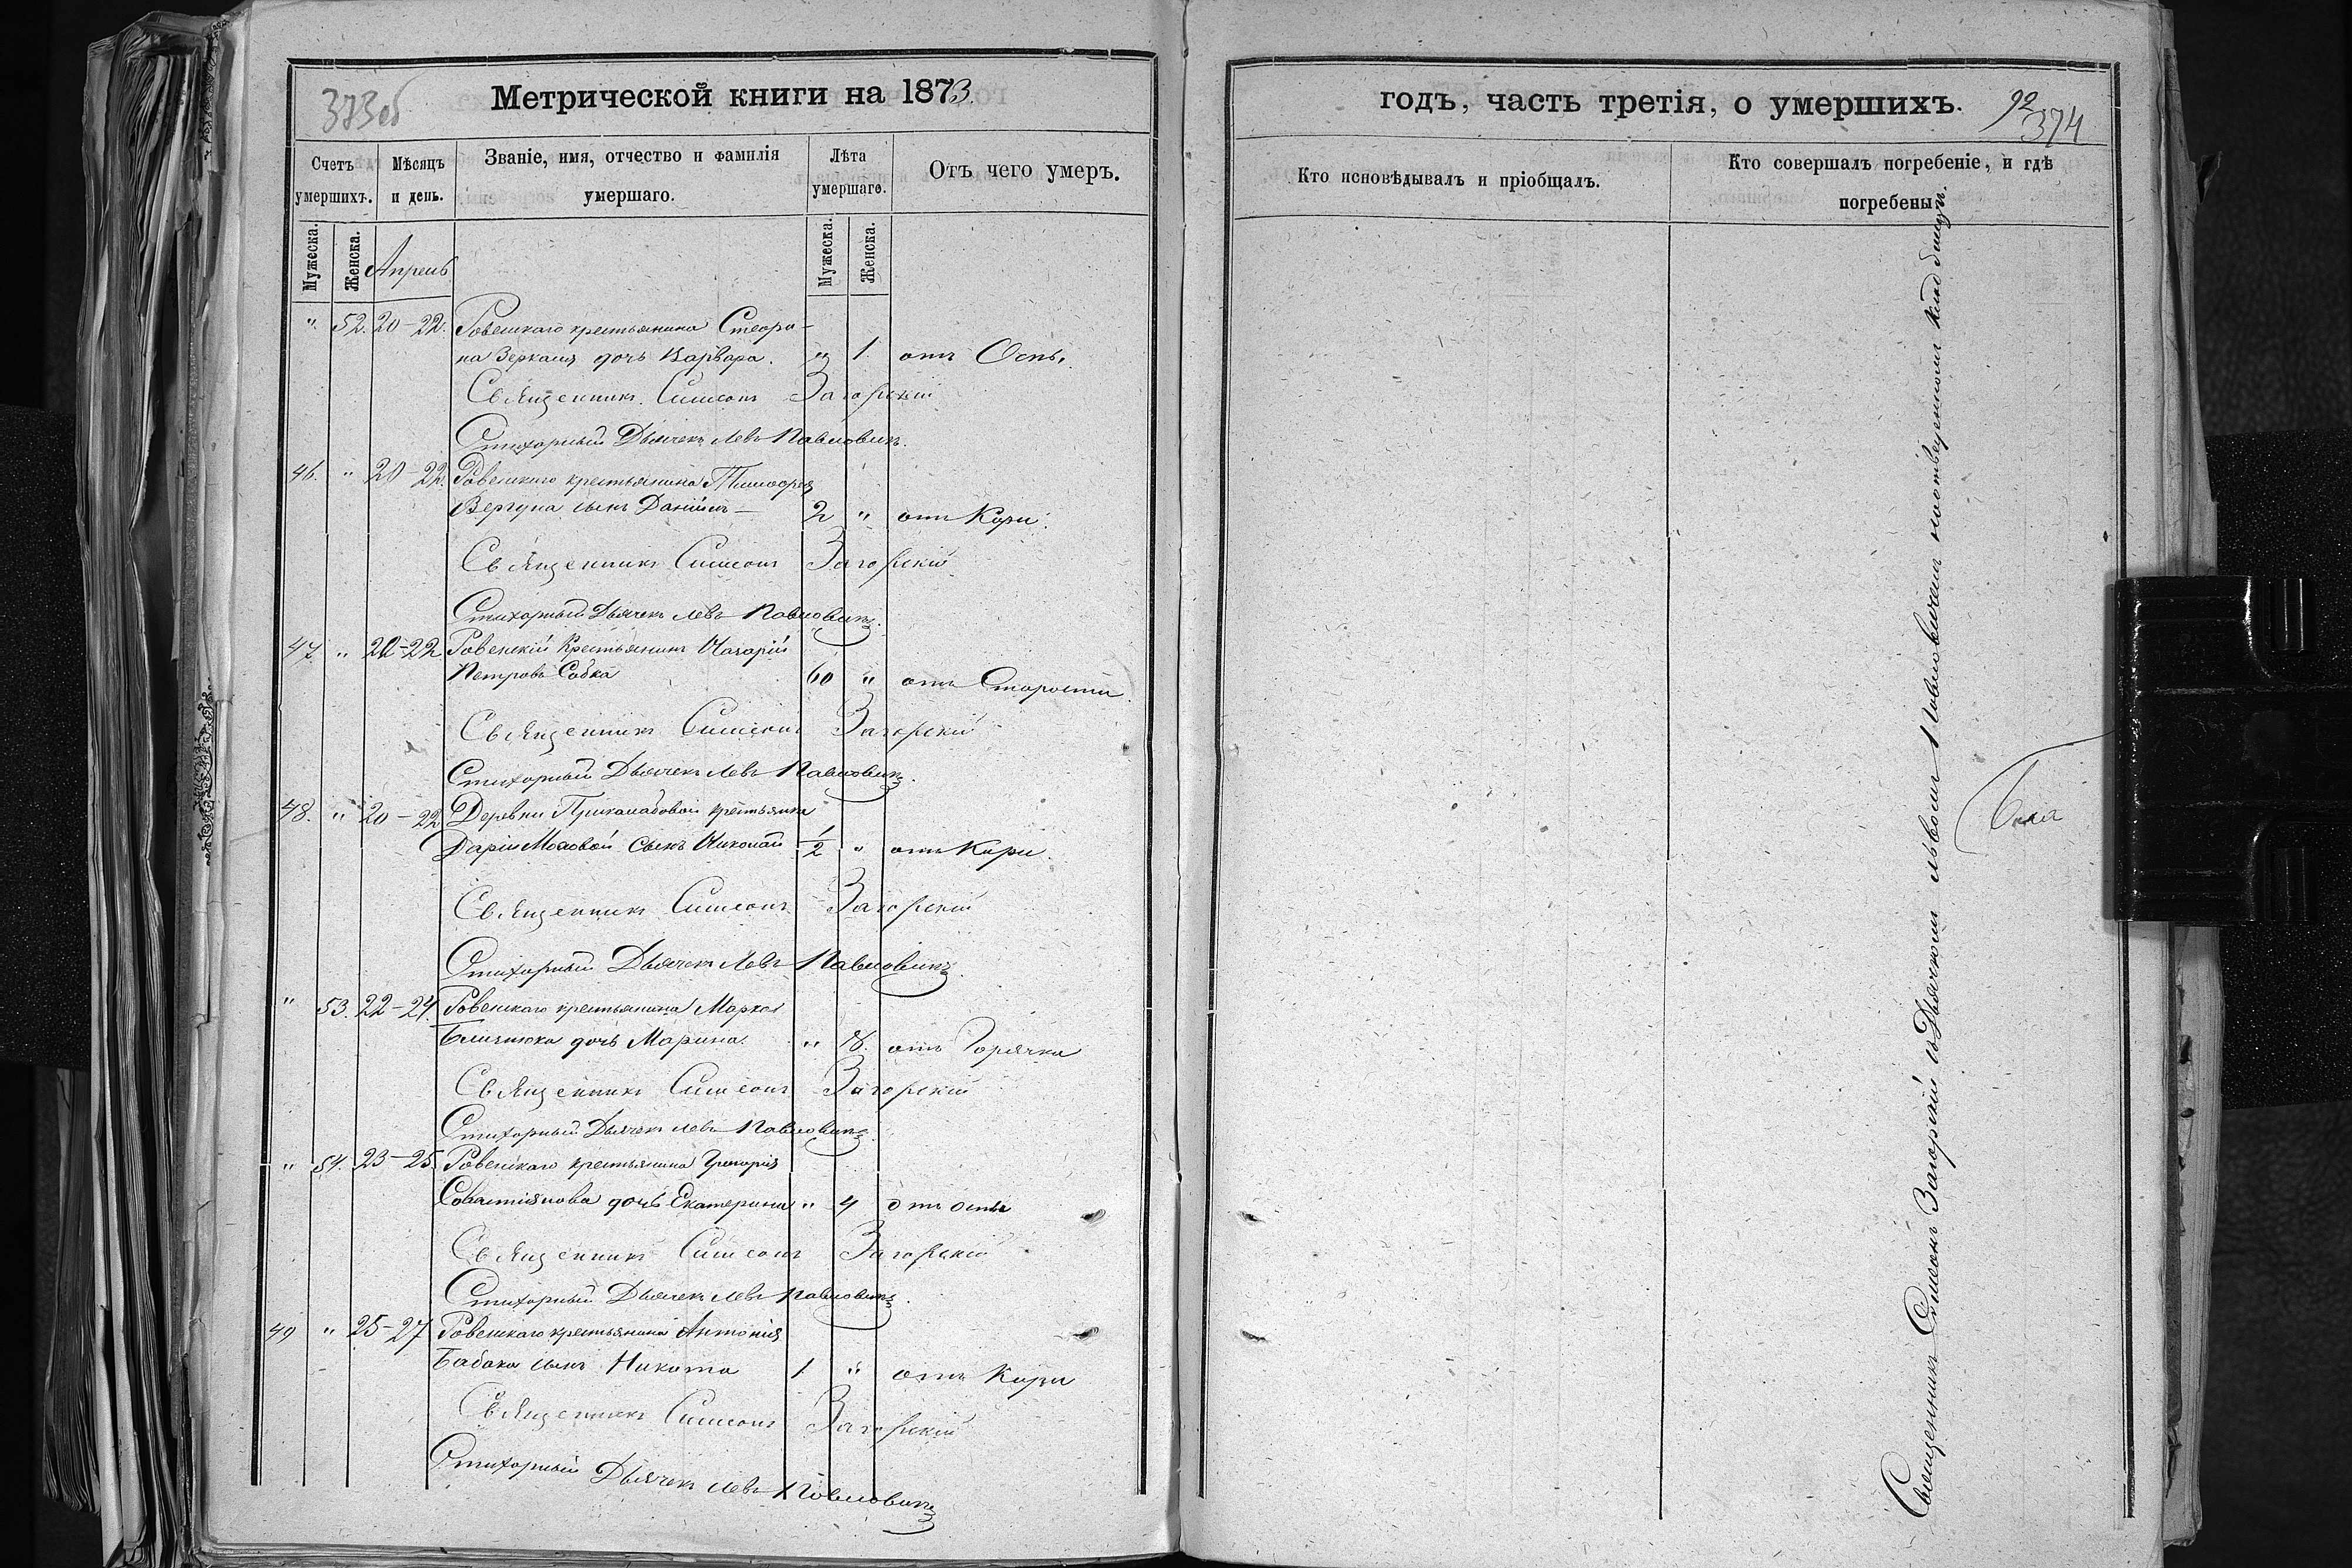 373 об
Метрической книги на 1873.
Счетъ умершихъ.
Мѣсяцъ и день.
Званіе, имя, отчество и фамилія умершаго.
Лѣта умершаго.
Отъ чего умеръ.
Мужеска.
Женска.
Апрель
Мужеска.
Женска.
". 52. 20-22. Ровенскаго крестьянина
дочь Варвара. " 1. отъ Оспы.
Священникъ Симеонъ Загорскій
Стихорный Дьячекъ Левъ Павловичъ.
46. " 20-22. Ровенскаго крестьянина Тимофея
Вергуна сынъ Даніилъ - 2 " отъ Кори.
Священникъ Симеонъ Загорскій
Стихорный Дьячекъ Левъ Павловичъ.
47. " 22 Ровенскій Крестьянинъ
Петровъ Собка 60 " отъ Старости.
Священникъ Симеонъ Загорскій
Стихорный Дьячекъ Левъ Павловичъ.
48. " 20-22 Деревни крестьянки
Даріи сынъ Николай 1/2 " отъ Кори.
Священникъ Симеонъ Загорскій
Стихорный Дьячекъ Левъ Павловичъ.
" 53. 22-24. Ровенскаго крестьянина Марка
Близнюка дочь Марина. " 8. отъ Горячки
Священникъ Симеонъ Загорскій
Стихорный Дьячекъ Левъ Павловичъ.
" 54. 23-25. Ровенскаго крестьянина Григорія
Савастіянова дочь Екатерина " 4 отъ оспы
Священникъ Симеонъ Загорскій
Стихорный Дьячекъ Левъ Павловичъ.
49 " 25-27 Ровенскаго крестьянина Антонія
Бабака сынъ Никита 1. " отъ Кори
Священникъ Симеонъ Загорскій
Стихорный Дьячекъ Левъ Павловичъ
годъ, часть третія, о умершихъ.
92
374
Кто исповѣдывалъ и пріобщалъ.
Кто совершалъ погребеніе, и гдѣ погребены.
Священникъ Симеонъ Загорскій съ Дьячкомъ Львомъ Павловичемъ на кладбищѣ.